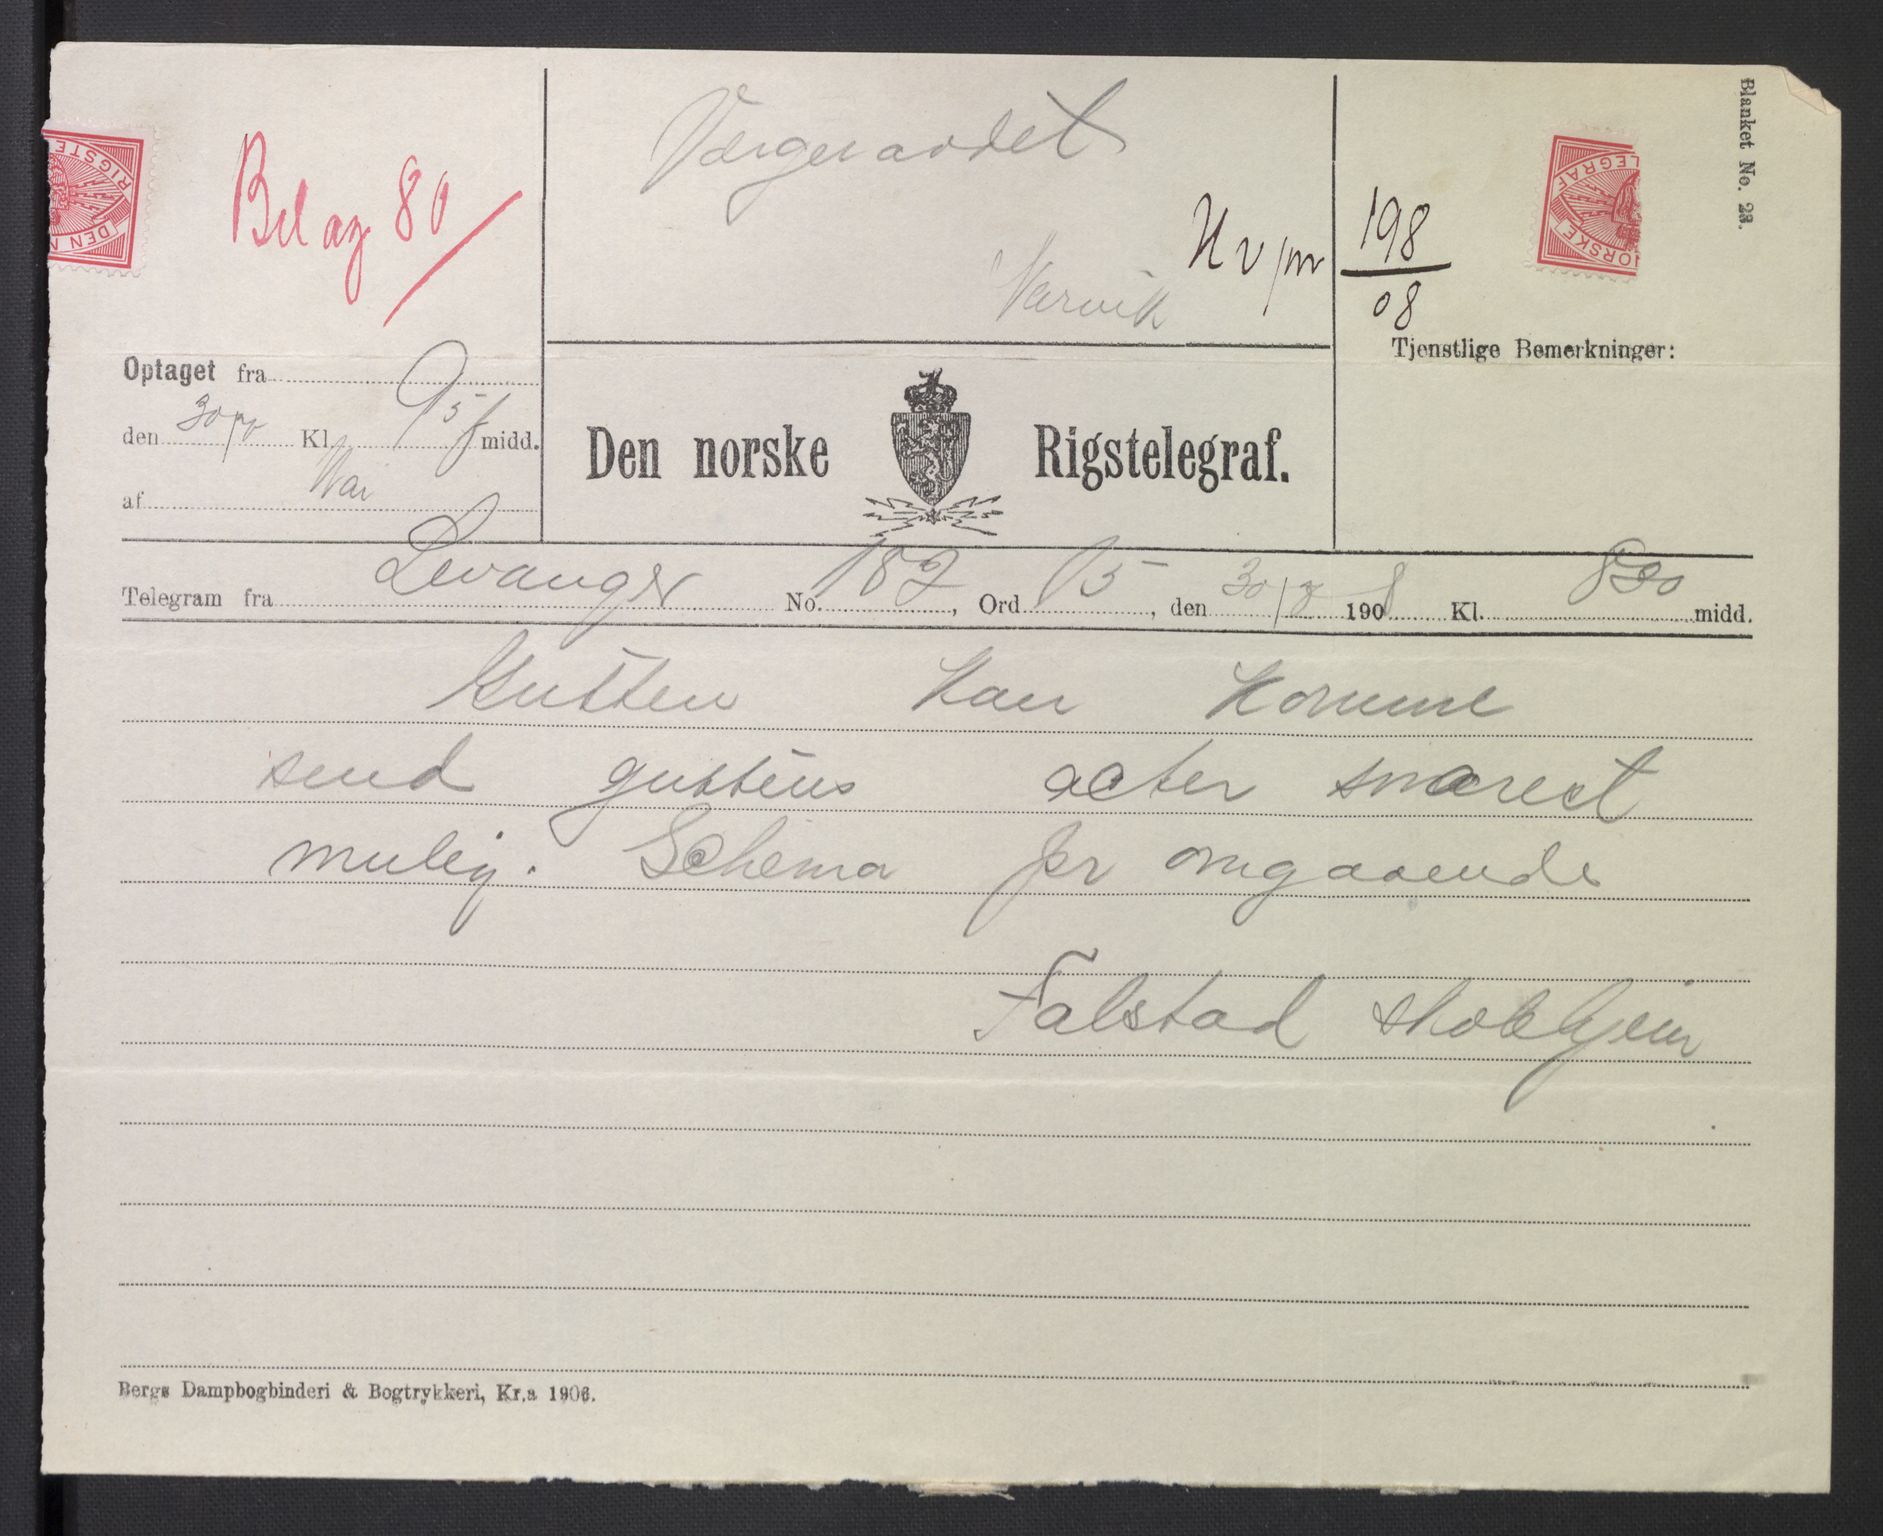 Blanket No. 23.
Bilag 80
Værgeraadet
Narvik
198
08
Tjenstlige Bemerkninger:
Optaget fra
den 30/ Kl. 95 f midd.
af
Den norske Rigstelegraf.
Telegram fra Levanger No. 182, Ord 15, den 30/7 1908 Kl. 820 midd.
Gutten kan komme
send guttens acter snarest
mulig. Schema pr omgaaende
Falstad skolehjem
Bergs Dampbogbinderi & Bogtrykkeri, Kr.a 1906.